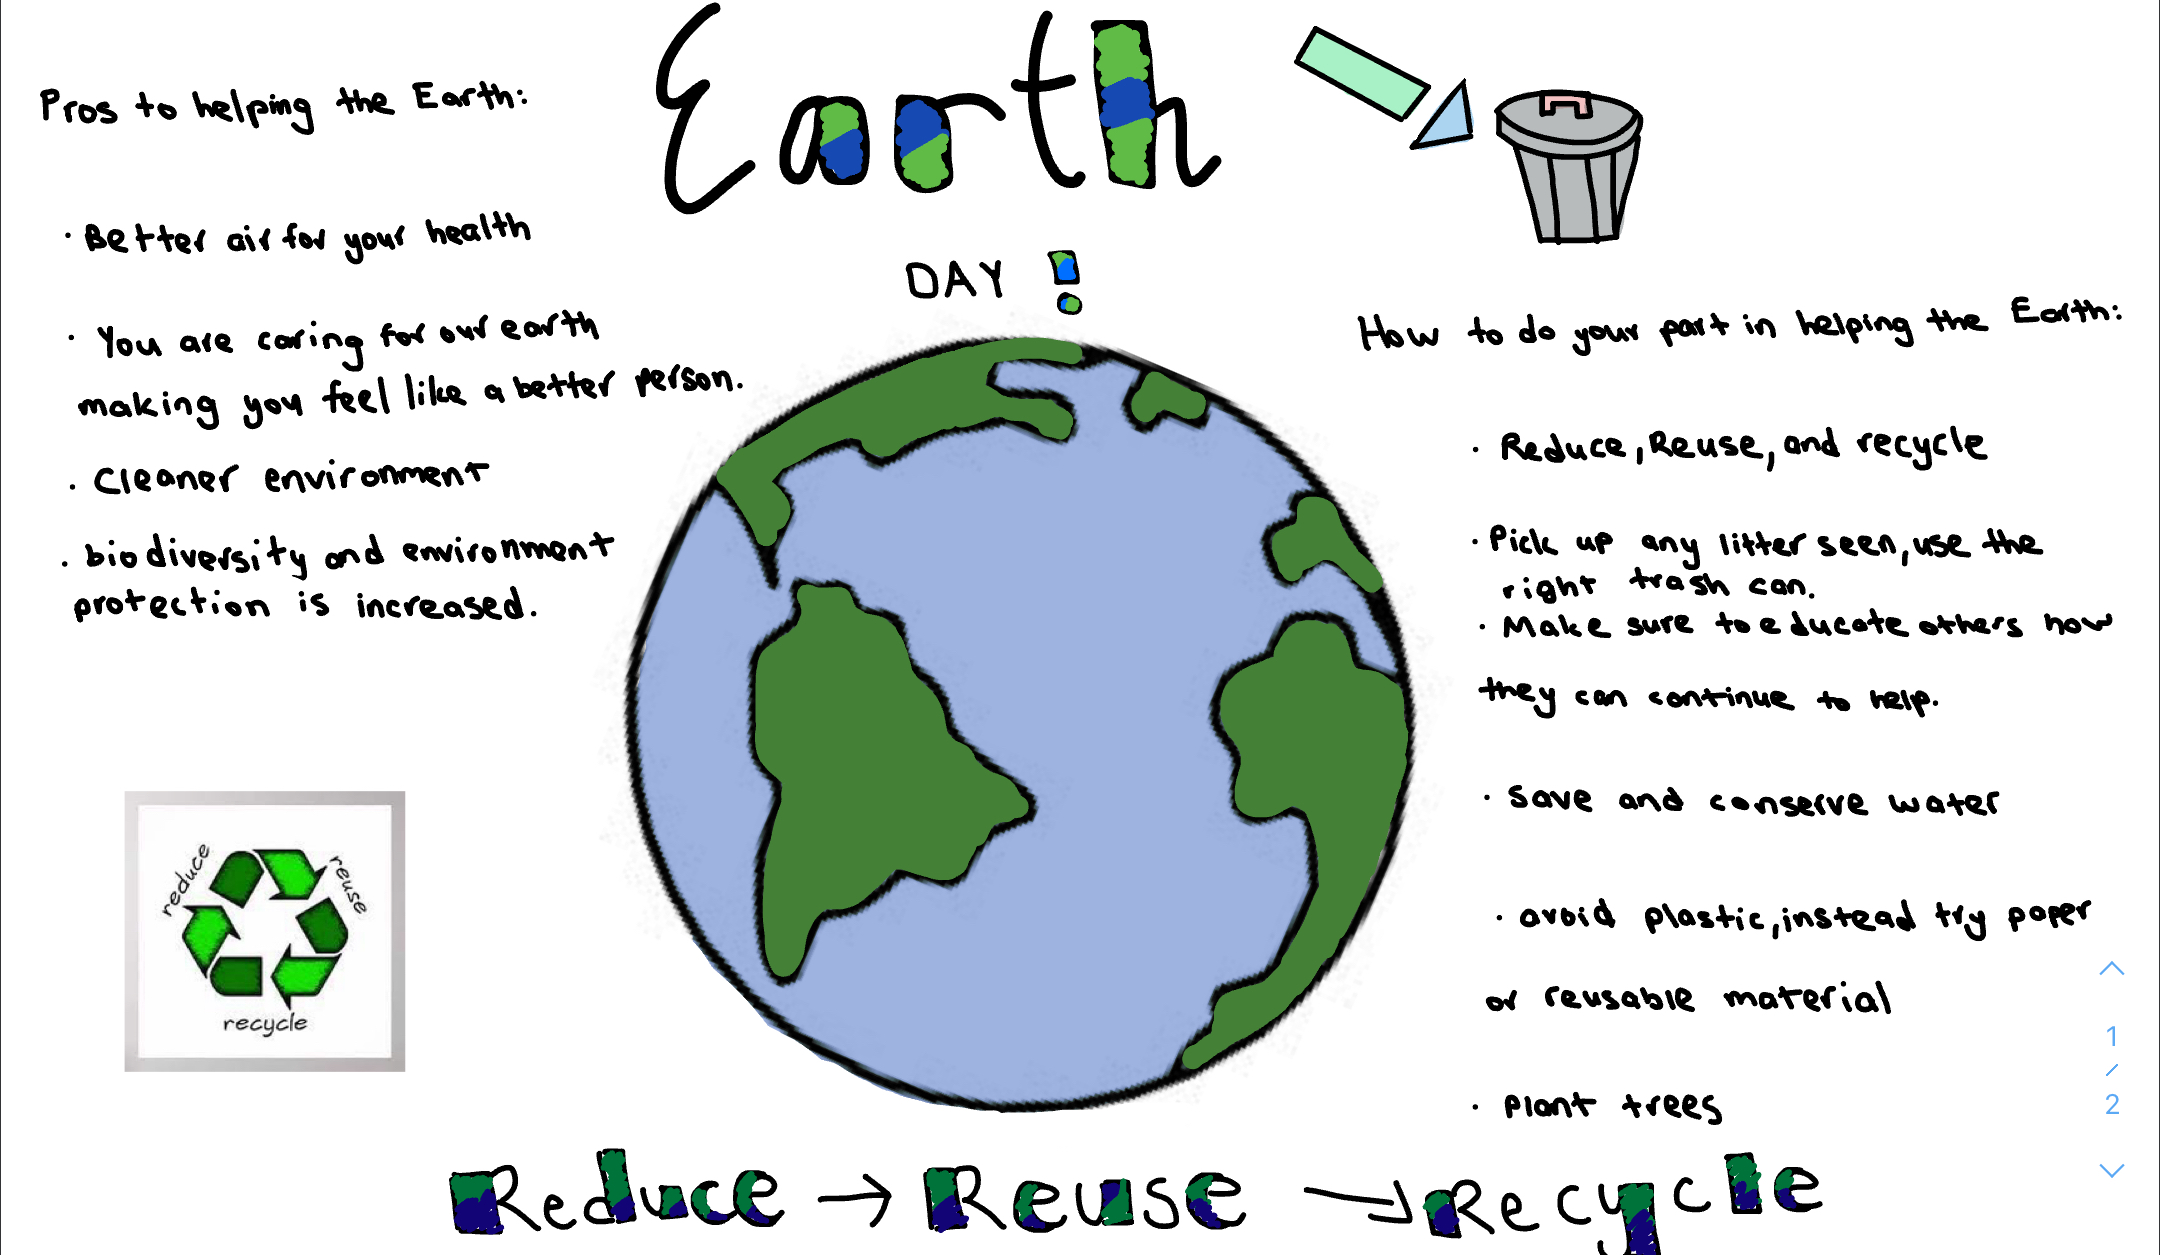 Earth
DAY !
Pros to helping the Earth:
· Better air for your health
· You are caring for our earth
making you feel like a better person.
· Cleaner environment
· biodiversity and environment
protection is increased.
reduce
reuse
recycle
How to do your part in helping the Earth:
· Reduce, Reuse, and recycle
· Pick up any litter seen, use the
right trash can.
· Make sure to educate others how
they can continue to help.
· save and conserve water
· avoid plastic, instead try paper
or reusable material
· plant trees
1
/
2
Reduce → Reuse → Recycle